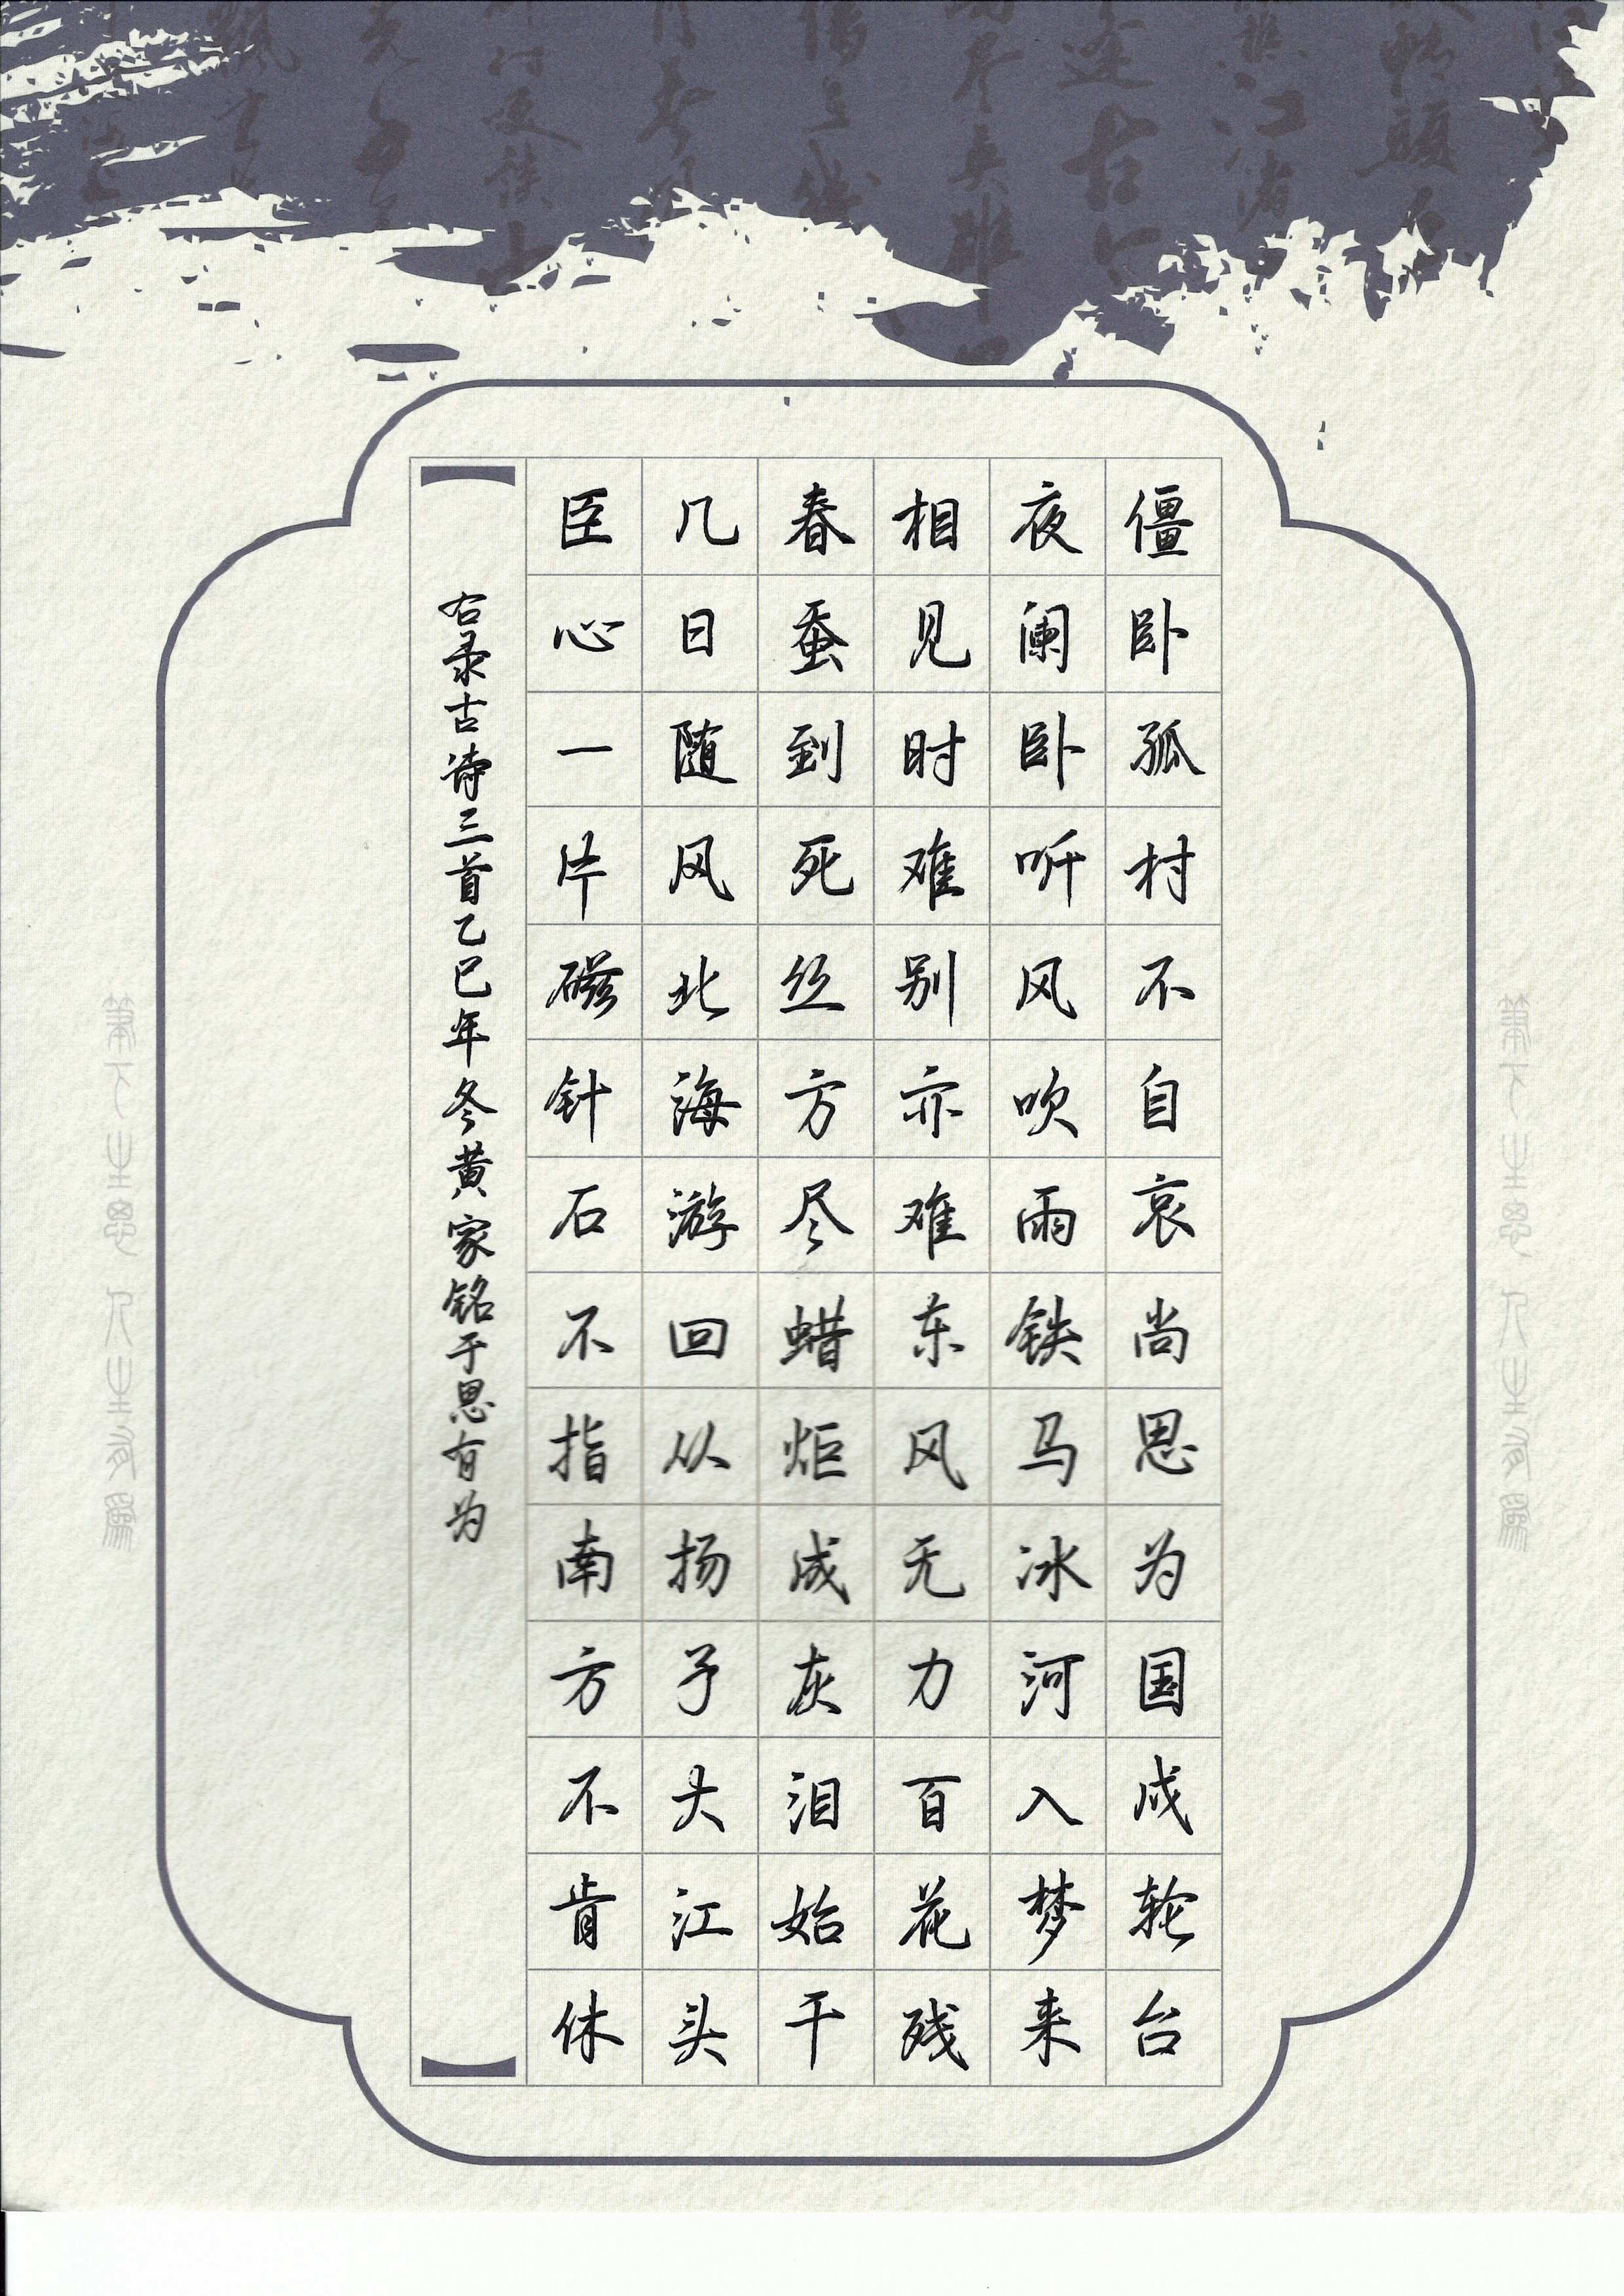 僵卧孤村不自哀尚思为国戍轮台
夜阑卧听风吹雨铁马冰河入梦来
相见时难别亦难东风无力百花残
春蚕到死丝方尽蜡炬成灰泪始干
几日随风北海游回从扬子大江头
臣心一片磁针石不指南方不肯休
右录古诗三首乙巳年冬黄家铭于思有为